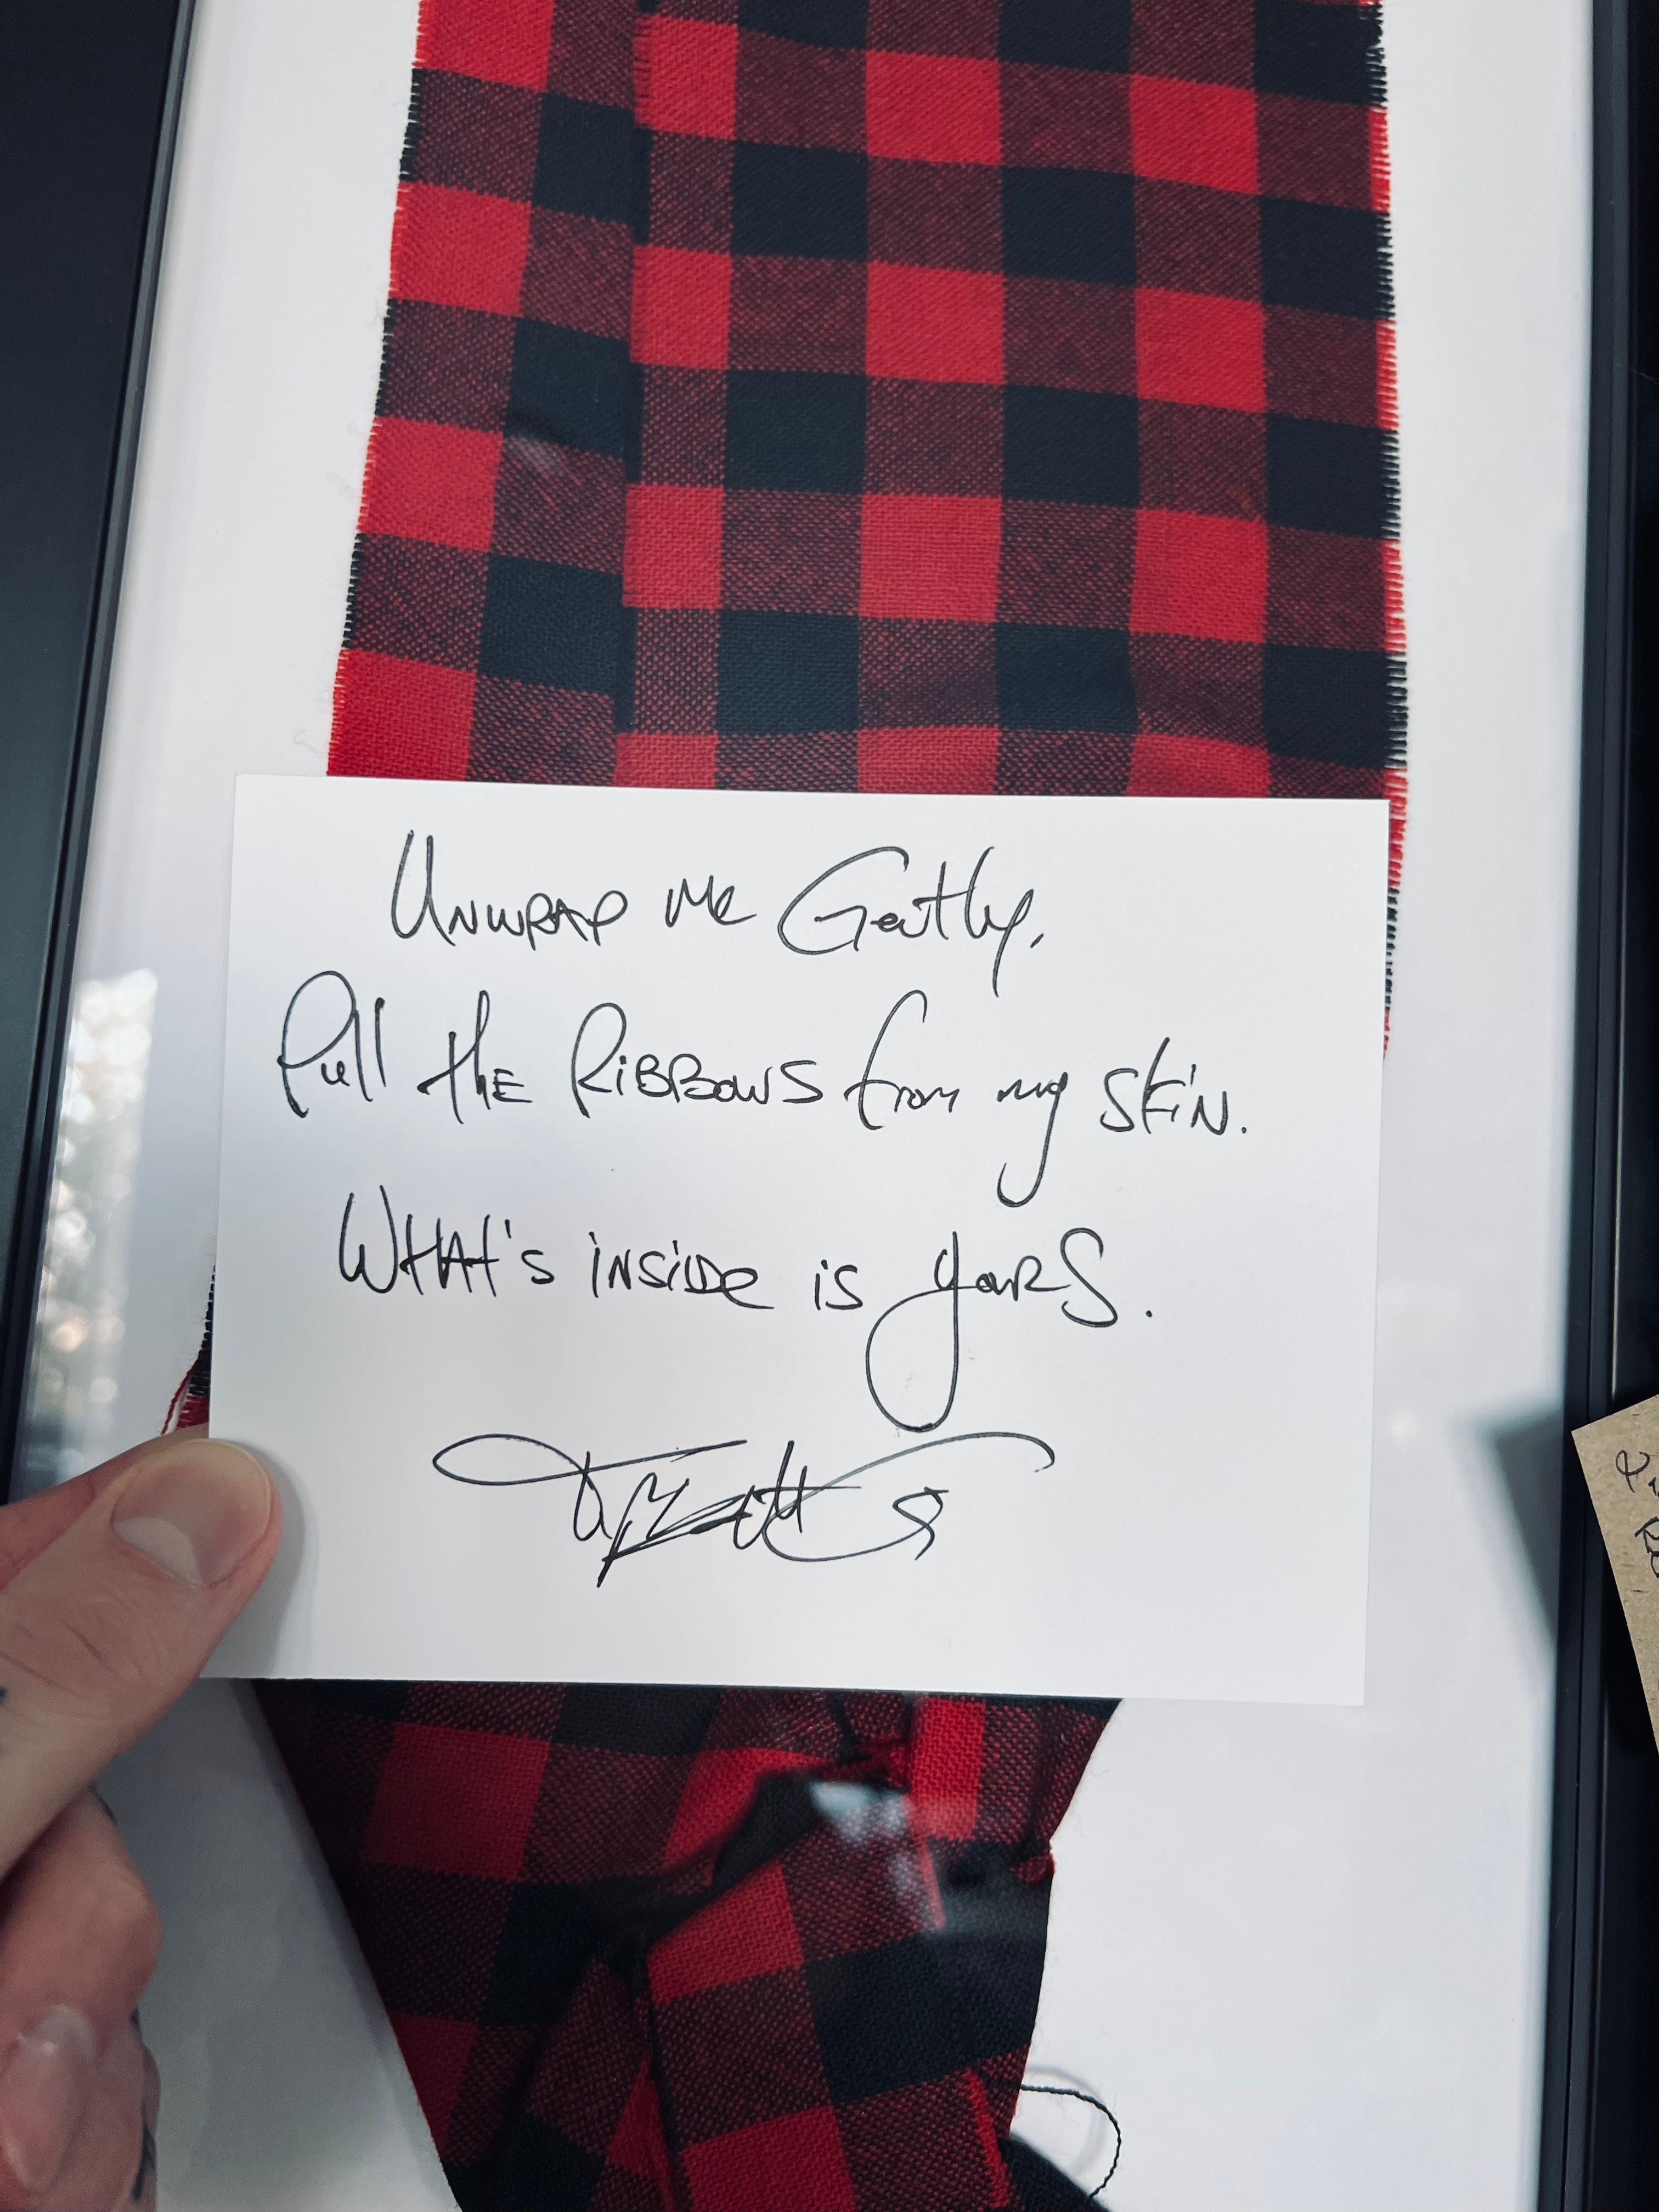 Unwrap me Gently,
Pull the Ribbons from my skin.
What's inside is yours.